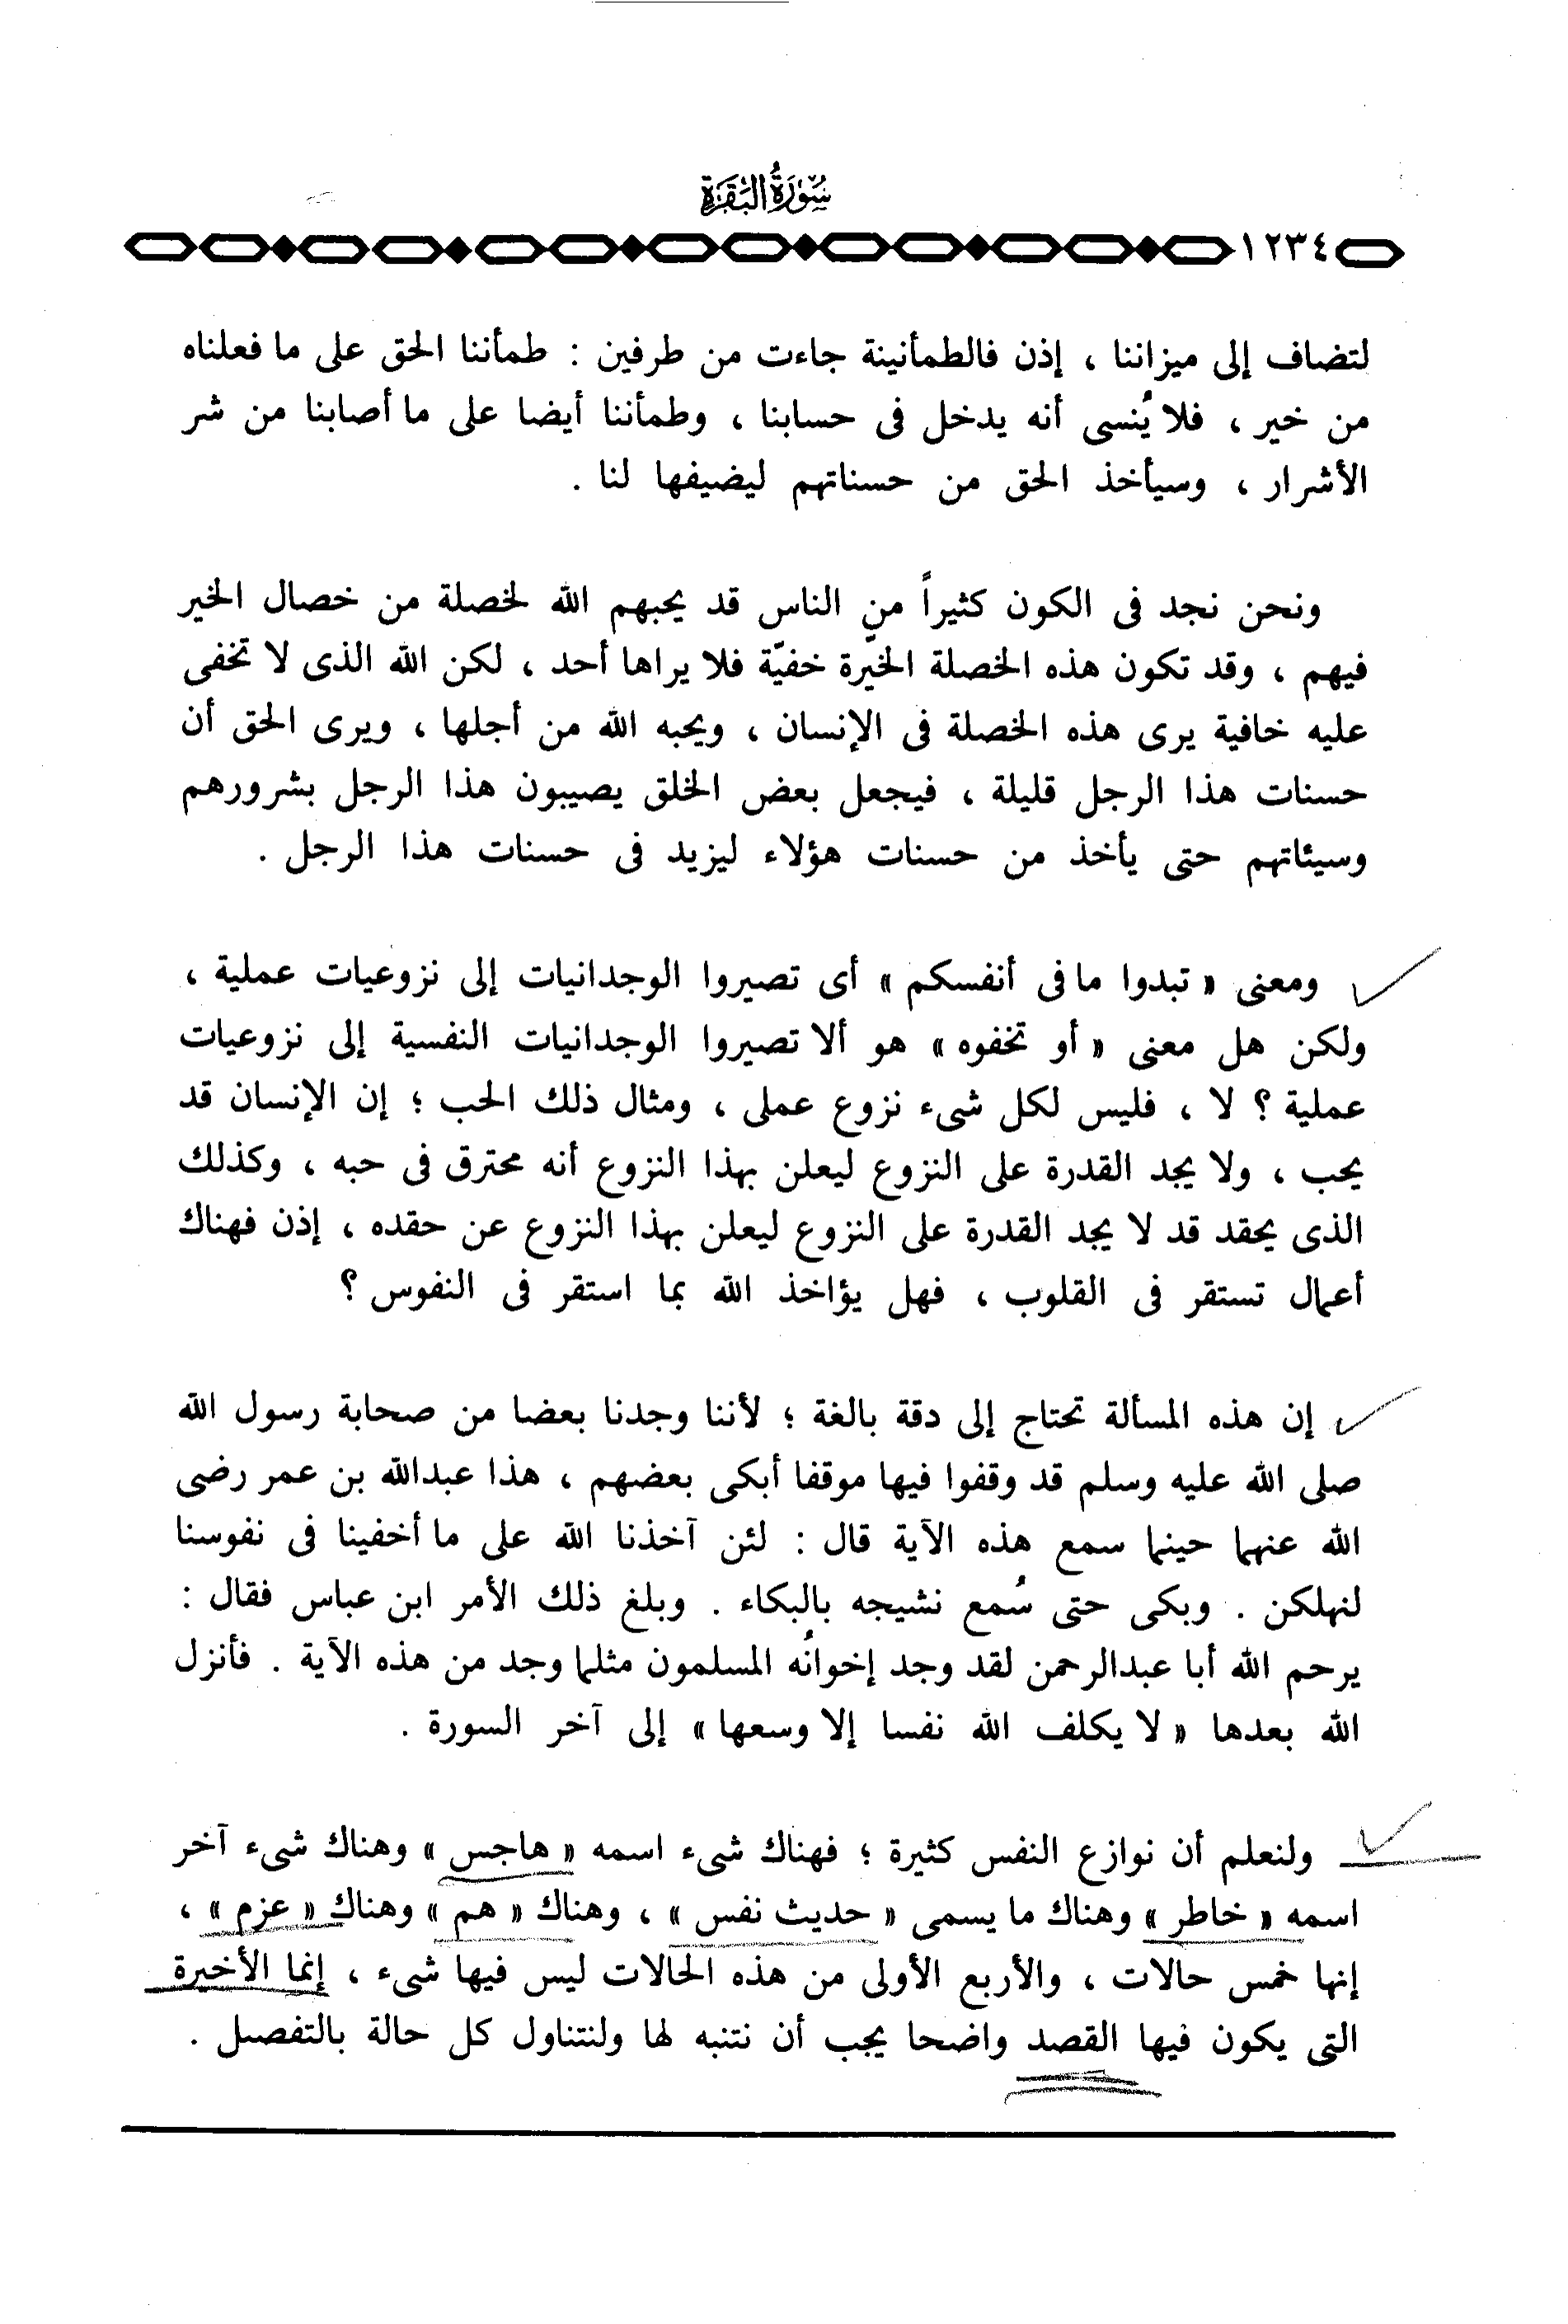 سورة البقرة
١٢٣٤
لتضاف إلى ميزاننا ، إذن فالطمأنينة جاءت من طرفين : طمأننا الحق على ما فعلناه
من خير ، فلا يُنسى أنه يدخل فى حسابنا ، وطمأننا أيضا على ما أصابنا من شر
الأشرار ، وسيأخذ الحق من حسناتهم ليضيفها لنا .
ونحن نجد فى الكون كثيراً من الناس قد يحبهم الله لخصلة من خصال الخير
فيهم ، وقد تكون هذه الخصلة الخيّرة خفيّة فلا يراها أحد ، لكن الله الذى لا تخفى
عليه خافية يرى هذه الخصلة فى الإنسان ، ويحبه الله من أجلها ، ويرى الحق أن
حسنات هذا الرجل قليلة ، فيجعل بعض الخلق يصيبون هذا الرجل بشرورهم
وسيئاتهم حتى يأخذ من حسنات هؤلاء ليزيد فى حسنات هذا الرجل .
ومعنى « تبدوا ما فى أنفسكم » أى تصيروا الوجدانيات إلى نزوعيات عملية ،
ولكن هل معنى « أو تخفوه » هو ألا تصيروا الوجدانيات النفسية إلى نزوعيات
عملية ؟ لا ، فليس لكل شىء نزوع عملى ، ومثال ذلك الحب ؛ إن الإنسان قد
يحب ، ولا يجد القدرة على النزوع ليعلن بهذا النزوع أنه محترق فى حبه ، وكذلك
الذى يحقد قد لا يجد القدرة على النزوع ليعلن بهذا النزوع عن حقده ، إذن فهناك
أعمال تستقر فى القلوب ، فهل يؤاخذ الله بما استقر فى النفوس ؟
إن هذه المسألة تحتاج إلى دقة بالغة ؛ لأننا وجدنا بعضا من صحابة رسول الله
صلى الله عليه وسلم قد وقفوا فيها موقفا أبكى بعضهم ، هذا عبدالله بن عمر رضى
الله عنهما حينما سمع هذه الآية قال : لئن آخذنا الله على ما أخفينا فى نفوسنا
لنهلكن . وبكى حتى سُمع نشيجه بالبكاء . وبلغ ذلك الأمر ابن عباس فقال :
يرحم الله أبا عبدالرحمن لقد وجد إخوانُه المسلمون مثلما وجد من هذه الآية . فأنزل
الله بعدها « لا يكلف الله نفسا إلا وسعها » إلى آخر السورة .
ولنعلم أن نوازع النفس كثيرة ؛ فهناك شىء اسمه « هاجس » وهناك شىء آخر
اسمه « خاطر » وهناك ما يسمى « حديث نفس » ، وهناك « هم » وهناك « عزم » ،
إنها خمس حالات ، والأربع الأولى من هذه الحالات ليس فيها شىء ، إنما الأخيرة
التى يكون فيها القصد واضحا يجب أن نتنبه لها ولنتناول كل حالة بالتفصيل .